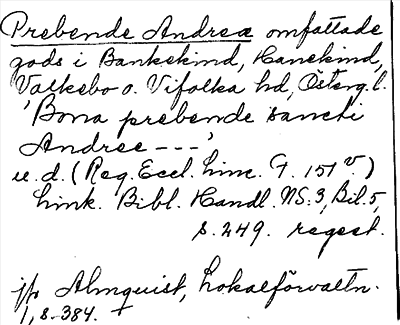 Prebende Andreæ omfattade
gods i Bankekind, Hanekind,
Valkebo o. Vifolka hd, Österg. l.
'Bona prebende sancti
Andree ---'
u.d. (Reg. Eccl. Linc. G. 151 v.)
Link. Bibl. Handl. NS: 3, Bil. 5,
s. 249. regest.
jfr Almquist, Lokalförvaltn.
1, s. 384.